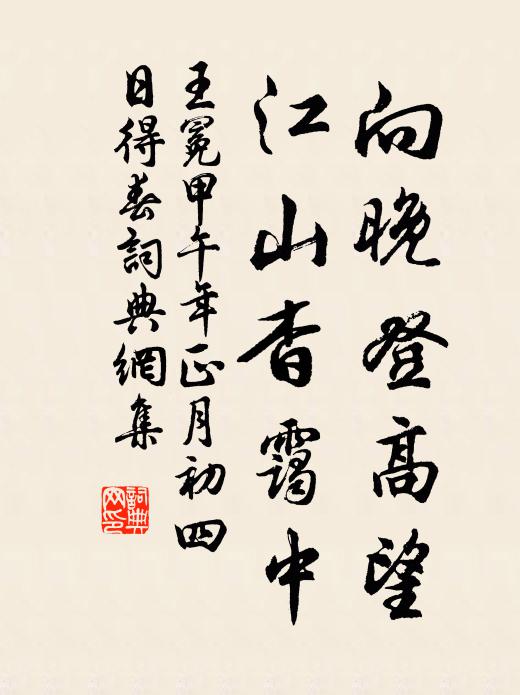 向晚登高望
江山杳靄中
王冕甲午年正月初四
日得春詞典網集
詞典
网印